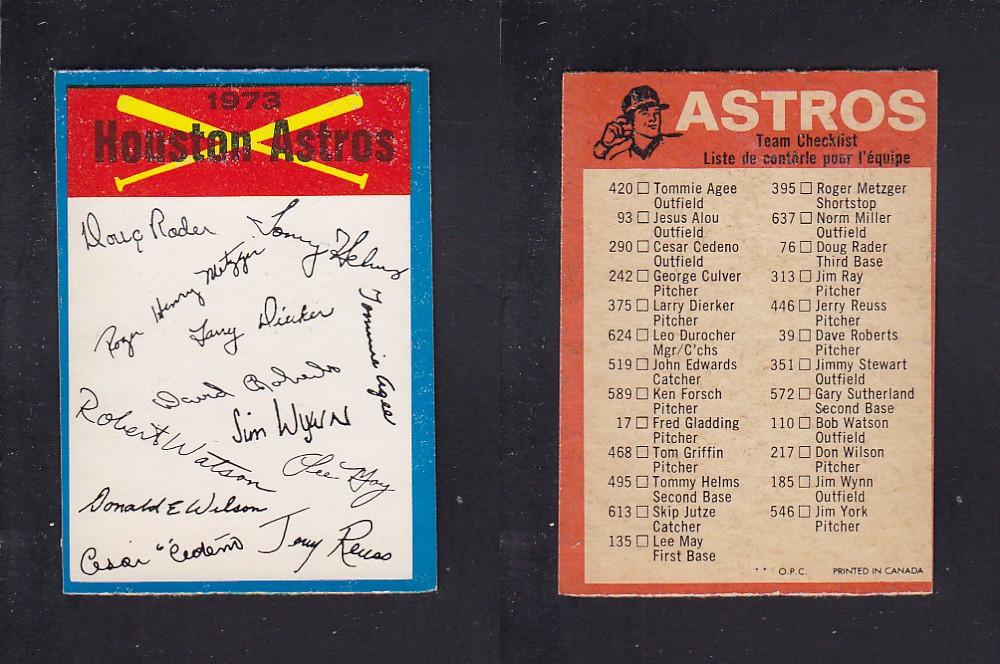 1973
Houston Astros
Doug Rader
Tommy Helms
Roger Henry Metzger
Larry Dierker
Tommie Agee
David Roberts
Jim Wynn
Robert Watson
Lee May
Donald E Wilson
Cesar "Cedeño
Jerry Reuss
ASTROS
Team Checklist
Liste de contêrle pour l'équipe
420 ☐ Tommie Agee
Outfield
93 ☐ Jesus Alou
Outfield
290 ☐ Cesar Cedeno
Outfield
242 ☐ George Culver
Pitcher
375 ☐ Larry Dierker
Pitcher
624 ☐ Leo Durocher
Mgr/C'chs
519 ☐ John Edwards
Catcher
589 ☐ Ken Forsch
Pitcher
17 ☐ Fred Gladding
Pitcher
468 ☐ Tom Griffin
Pitcher
495 ☐ Tommy Helms
Second Base
613 ☐ Skip Jutze
Catcher
135 ☐ Lee May
First Base
395 ☐ Roger Metzger
Shortstop
637 ☐ Norm Miller
Outfield
76 ☐ Doug Rader
Third Base
313 ☐ Jim Ray
Pitcher
446 ☐ Jerry Reuss
Pitcher
39 ☐ Dave Roberts
Pitcher
351 ☐ Jimmy Stewart
Outfield
572 ☐ Gary Sutherland
Second Base
110 ☐ Bob Watson
Outfield
217 ☐ Don Wilson
Pitcher
185 ☐ Jim Wynn
Outfield
546 ☐ Jim York
Pitcher
** O.P.C. PRINTED IN CANADA